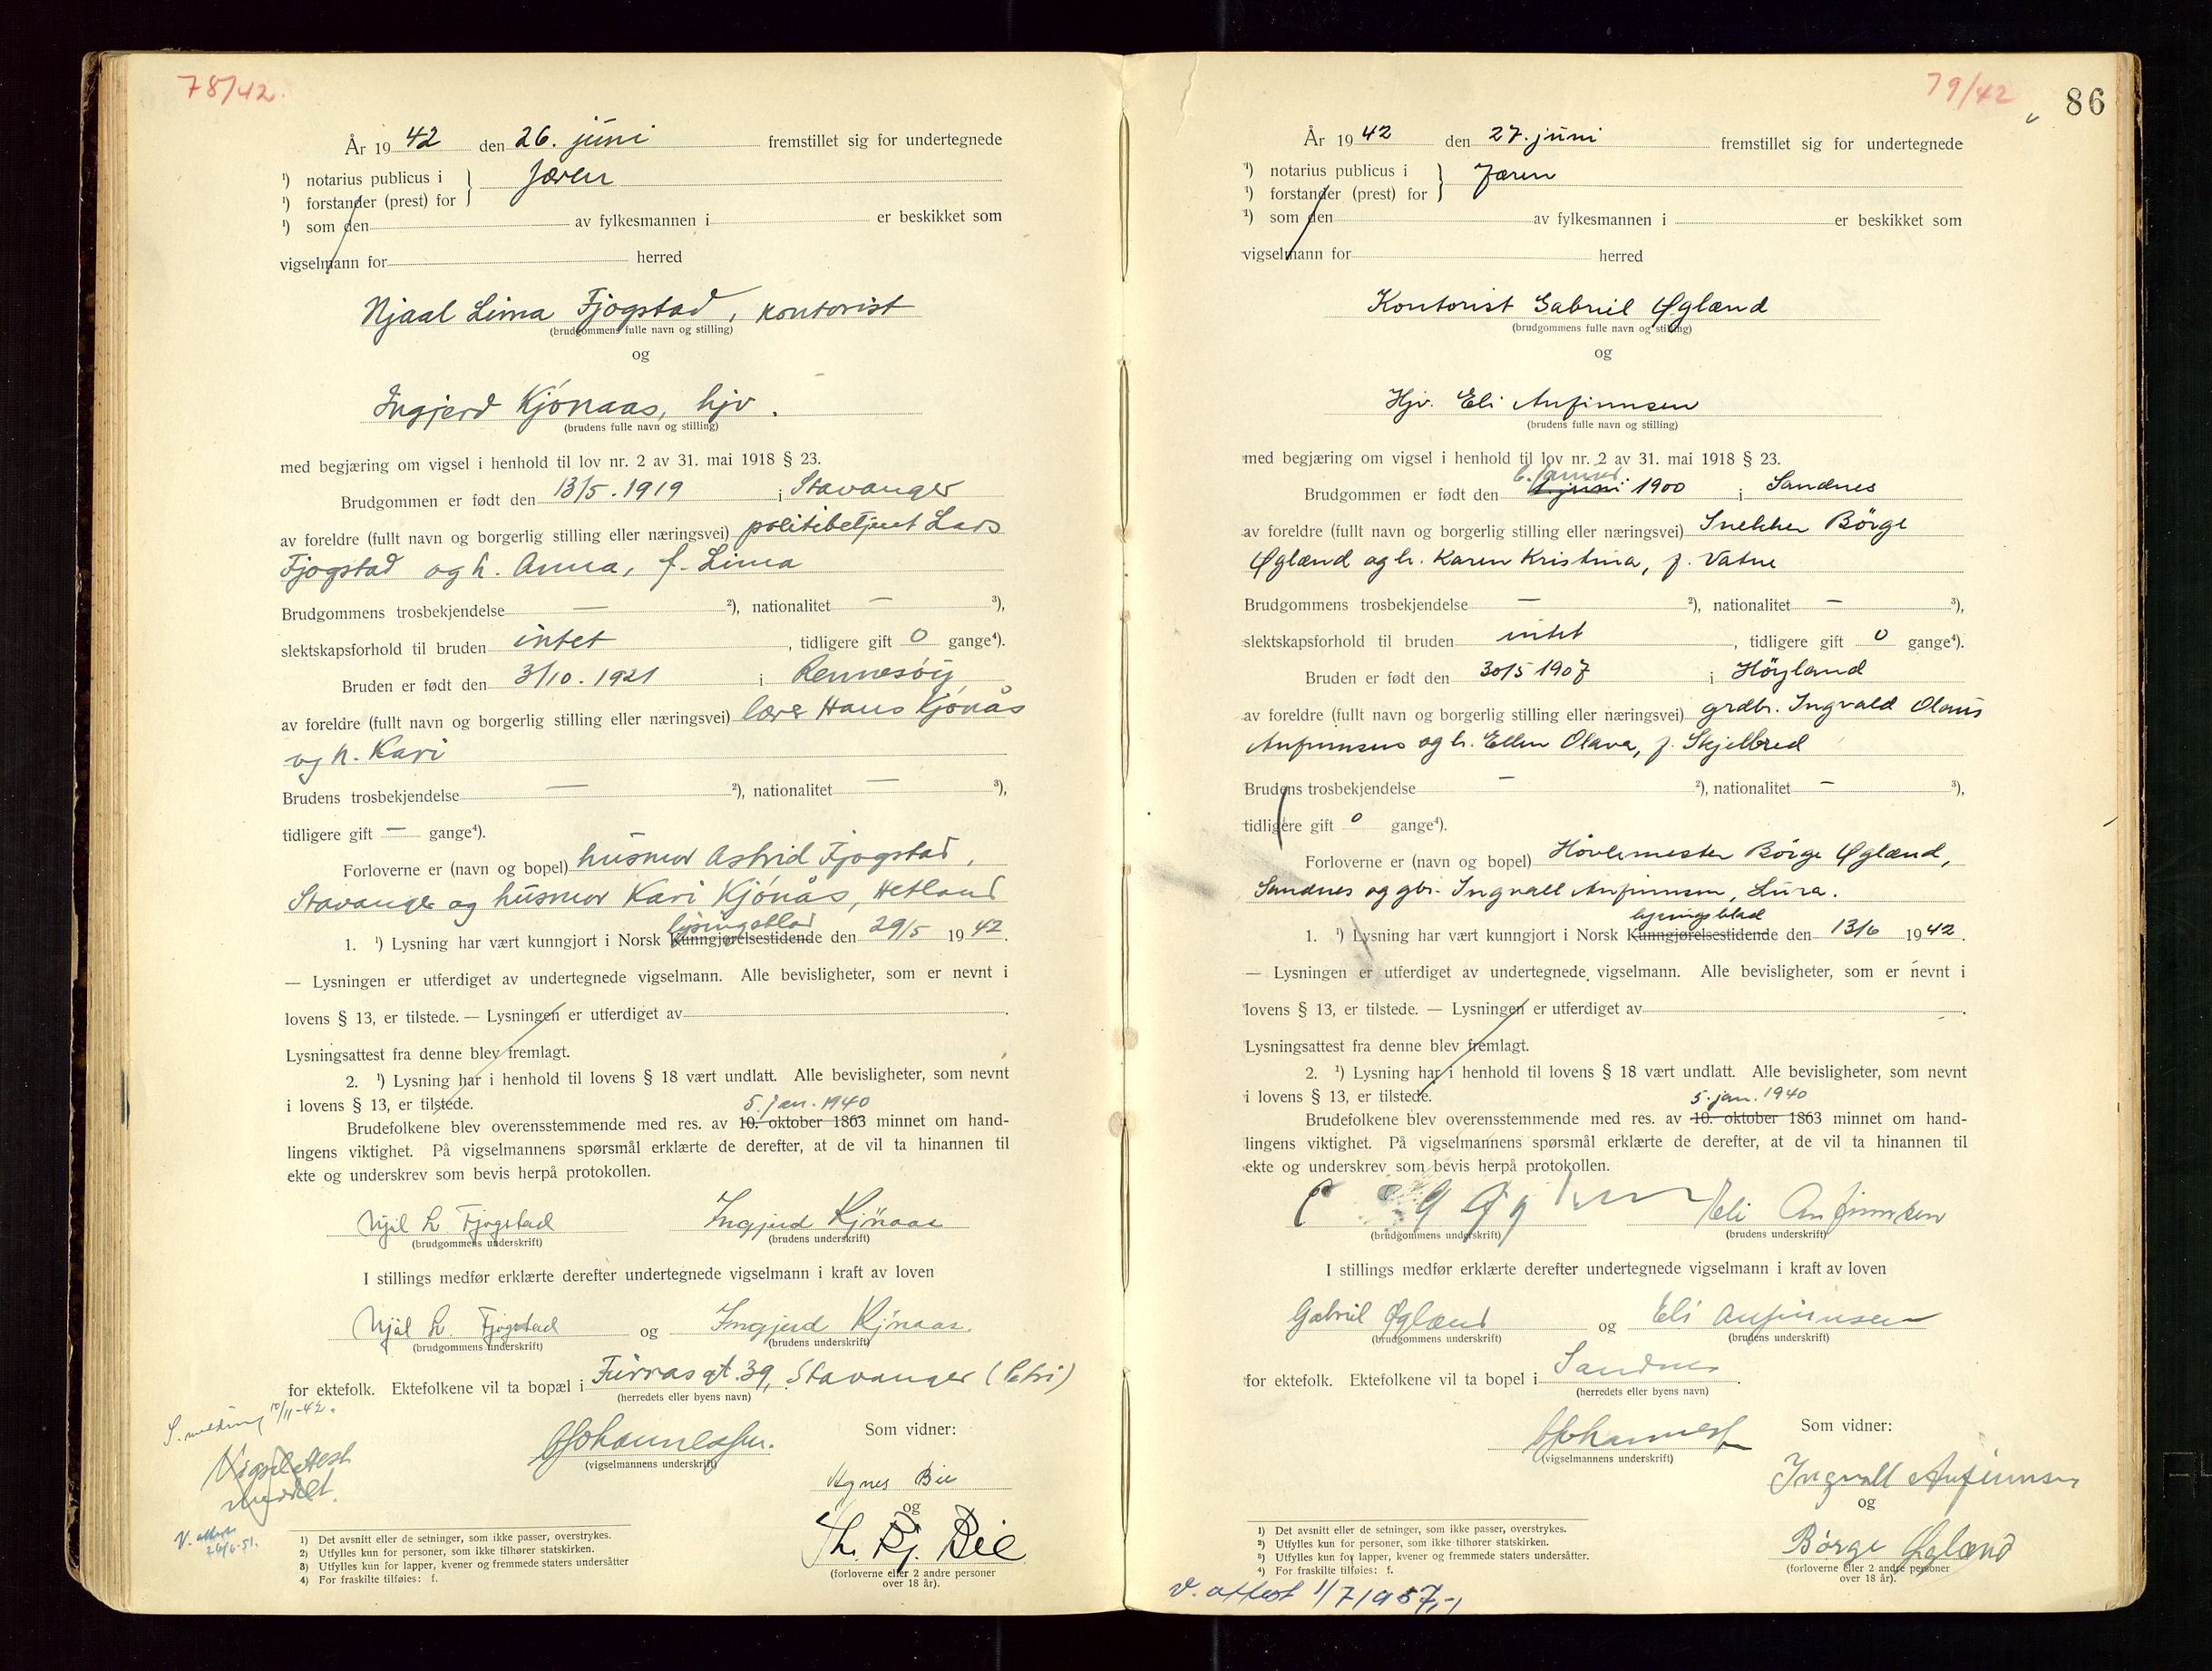 78/42.
År 1942 den 26. juni fremstillet sig for undertegnede
¹) notarius publicus i } Jæren
¹) forstander (prest) for
¹) som den av fylkesmannen i er beskikket som
vigselmann for herred
Njaal Lima Fjogstad, kontorist
(brudgommens fulle navn og stilling)
og
Ingjerd Kjónaas, hjv.
(brudens fulle navn og stilling)
med begjæring om vigsel i henhold til lov nr. 2 av 31. mai 1918 § 23.
Brudgommen er født den 13/5. 1919 i Stavanger
av foreldre (fullt navn og borgerlig stilling eller næringsvei) politibetjent Lars
Fjogstad og h. Anna, f. Lima
Brudgommens trosbekjendelse — ²), nationalitet — ³),
slektskapsforhold til bruden intet, tidligere gift 0 gange⁴).
Bruden er født den 3/10. 1921 i Rennesöy
av foreldre (fullt navn og borgerlig stilling eller næringsvei) lærer Hans Kjónås
og h. Kari
Brudens trosbekjendelse — ²), nationalitet — ³),
tidligere gift — gange⁴).
Forloverne er (navn og bopel) husmor Astrid Fjogstad,
Stavanger og husmor Kari Kjónås, Hetland
lysingsblad
1. ¹) Lysning har vært kunngjort i Norsk Kunngjørelsestidende den 29/5 1942.
— Lysningen er utferdiget av undertegnede vigselmann. Alle bevisligheter, som er nevnt i
lovens § 13, er tilstede. — Lysningen er utferdiget av .
Lysningsattest fra denne blev fremlagt.
2. ¹) Lysning har i henhold til lovens § 18 vært undlatt. Alle bevisligheter, som nevnt
i lovens § 13, er tilstede.
5. jan. 1940
Brudefolkene blev overensstemmende med res. av 10. oktober 1863 minnet om hand-
lingens viktighet. På vigselmannens spørsmål erklærte de derefter, at de vil ta hinannen til
ekte og underskrev som bevis herpå protokollen.
Njål L. Fjogstad Ingjerd Kjönaas
(brudgommens underskrift) (brudens underskrift)
I stillings medfør erklærte derefter undertegnede vigselmann i kraft av loven
Njål L. Fjogstad og Ingjerd Kjönaas
(brudgommens underskrift) (brudens underskrift)
for ektefolk. Ektefolkene vil ta bopæl i Furrasgt. 39, Stavanger (Petri)
(herredets eller byens navn)
S. melding 10/11-42.
Som vidner:
(vigselmannens underskrift)
Vigselattest
meddelt.
Agnes Bie
og
Th. Kj. Bie
V. attest
26/6.51.
(forloverne eller 2 andre personer
over 18 år).
1) Det avsnitt eller de setninger, som ikke passer, overstrykes.
2) Utfylles kun for personer, som ikke tilhører statskirken.
3) Utfylles kun for lapper, kvener og fremmede staters undersåtter
4) For fraskilte tilføies: f.
79/42
86
År 1942 den 27. juni fremstillet sig for undertegnede
¹) notarius publicus i } Jæren
¹) forstander (prest) for
¹) som den av fylkesmannen i er beskikket som
vigselmann for herred
Kontorist Gabriel Øglænd
(brudgommens fulle navn og stilling)
og
Hjv. Eli Anfinnsen
(brudens fulle navn og stilling)
med begjæring om vigsel i henhold til lov nr. 2 av 31. mai 1918 § 23.
6. januar
Brudgommen er født den juni 1900 i Sandnes
av foreldre (fullt navn og borgerlig stilling eller næringsvei) Snekker Börge
Øglænd og h. Karen Kristina, f. Vatne
Brudgommens trosbekjendelse — ²), nationalitet — ³),
slektskapsforhold til bruden intet, tidligere gift 0 gange⁴).
Bruden er født den 30/5 1907 i Höyland
av foreldre (fullt navn og borgerlig stilling eller næringsvei) grdbr. Ingvald Olaus
Anfinnsen og h. Ellen Olava, f. Skjelbred
Brudens trosbekjendelse — ²), nationalitet — ³),
tidligere gift 0 gange⁴).
Forloverne er (navn og bopel) Hövlemester Börge Øglænd,
Sandnes og gbr. Ingvall Anfinnsen, Lura.
lysingsblad
1. ¹) Lysning har vært kunngjort i Norsk Kunngjørelsestidende den 13/6 1942.
— Lysningen er utferdiget av undertegnede vigselmann. Alle bevisligheter, som er nevnt i
lovens § 13, er tilstede. — Lysningen er utferdiget av .
Lysningsattest fra denne blev fremlagt.
2. ¹) Lysning har i henhold til lovens § 18 vært undlatt. Alle bevisligheter, som nevnt
i lovens § 13, er tilstede.
5. jan. 1940
Brudefolkene blev overensstemmende med res. av 10. oktober 1863 minnet om hand-
lingens viktighet. På vigselmannens spørsmål erklærte de derefter, at de vil ta hinannen til
ekte og underskrev som bevis herpå protokollen.
Eli Anfinnsen
(brudgommens underskrift) (brudens underskrift)
I stillings medfør erklærte derefter undertegnede vigselmann i kraft av loven
Gabriel Øglænd og Eli Anfinnsen
(brudgommens underskrift) (brudens underskrift)
for ektefolk. Ektefolkene vil ta bopel i Sandnes.
(herredets eller byens navn)
Som vidner:
(vigselmannens underskrift)
Ingvall Anfinnsen
og
Børge Øglænd
(forloverne eller 2 andre personer
over 18 år).
1) Det avsnitt eller de setninger, som ikke passer, overstrykes.
2) Utfylles kun for personer, som ikke tilhører statskirken.
3) Utfylles kun for lapper, kvener og fremmede staters undersåtter.
4) For fraskilte tilføies: f.
V. attest 1/7 1957,-